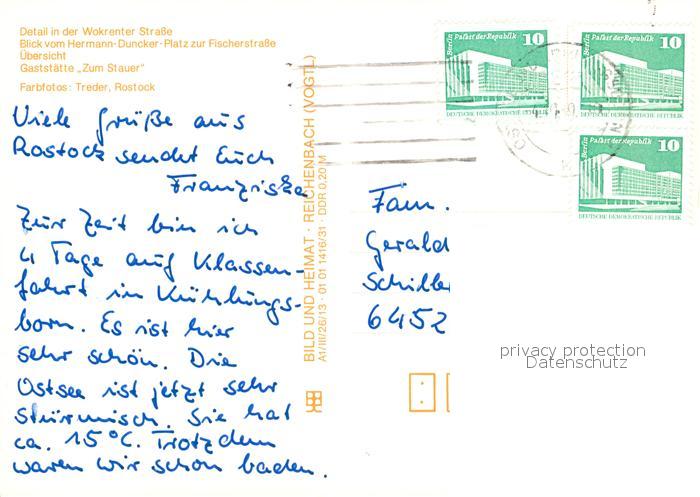 Detail in der Wokrenter Straße
Blick vom Hermann-Duncker-Platz zur Fischerstraße
Übersicht
Gaststätte „Zum Stauer"
Farbfotos: Treder, Rostock
Viele Grüße aus
Rostock sendet Euch
Franziska
Zur Zeit bin ich
4 Tage auf Klassen-
fahrt in Kühlungs-
born. Es ist hier
sehr schön. Die
Ostsee ist jetzt sehr
stürmisch. Sie hat
ca. 15°C. Trotzdem
waren wir schon baden.
BILD UND HEIMAT · REICHENBACH (VOGTL)
A1/III/26/13 · 01 01 1416/31 · DDR 0,20 M
Berlin Palast der Republik 10
DEUTSCHE DEMOKRATISCHE REPUBLIK
Berlin Palast der Republik 10
DEUTSCHE DEMOKRATISCHE REPUBLIK
Berlin Palast der Republik 10
DEUTSCHE DEMOKRATISCHE REPUBLIK
Fam.
Gerald
Schille
6452
privacy protection
Datenschutz